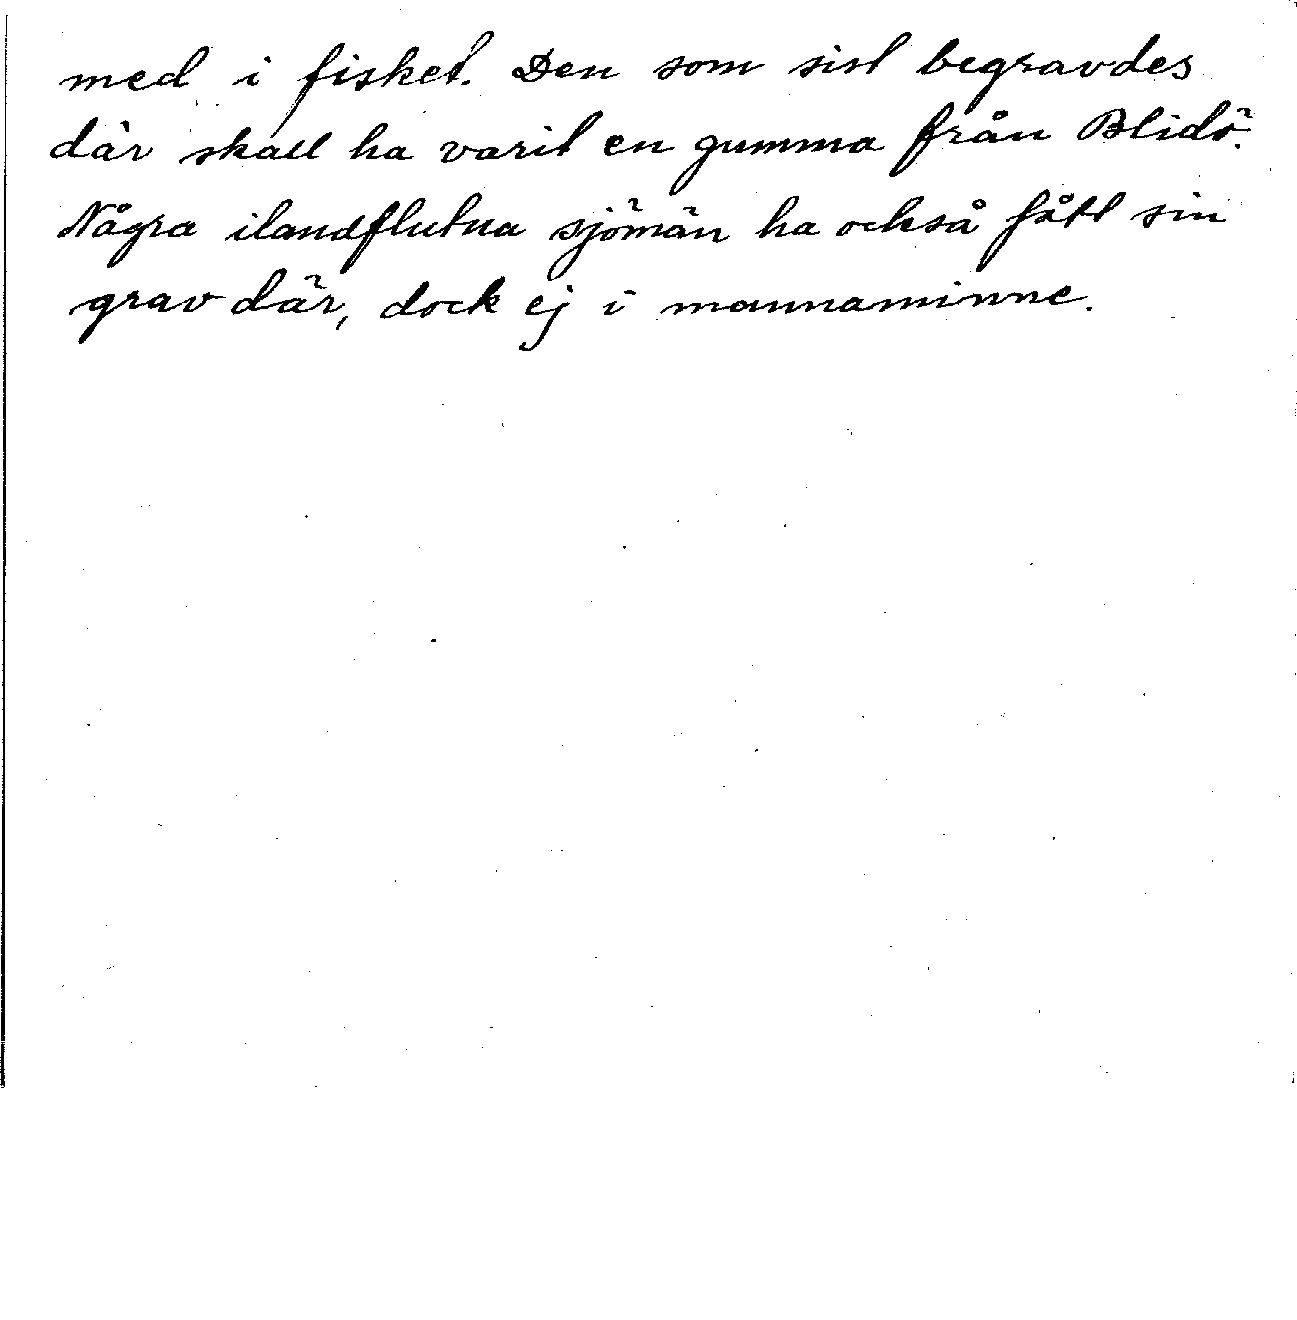 med i fisket. Den som sist begravdes
där skall ha varit en gumma från Blidö.
Några ilandflutna sjömän ha också fått sin
grav där, dock ej i mannaminne.